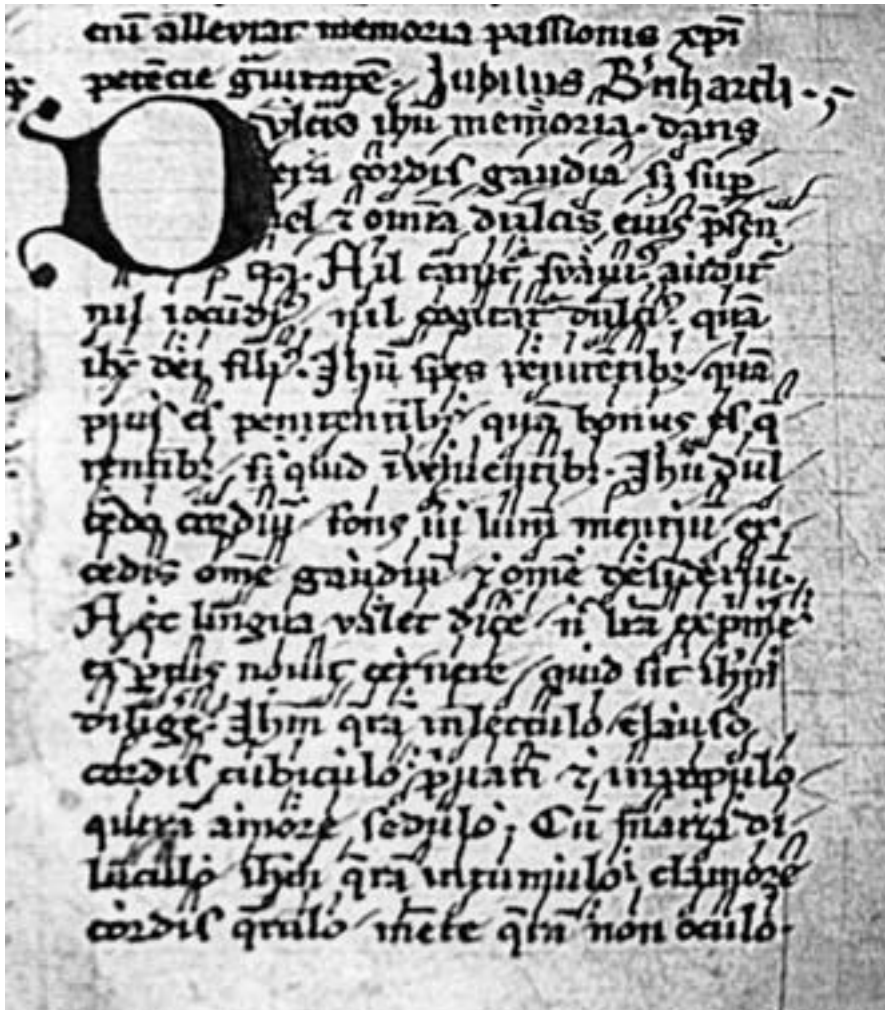 eni̅ alleviat memoria passionis xp̅i
Jubilus B'nhardi
Dvlcis ih̅u mem̅oria dans
vera cordis gaudia sʒ sup
mel ⁊ om̅ia dulcis eius p̅sen
Nil canit² svavi⁹ audit²
nil iocu̅di⁹ nil cogitat² dulci⁹ qua̅
ih̅s dei fili⁹ Jh̅u spes penite̅tibʒ qua̅
pius es petentibʒ qua̅ bonus es q̅
rentibʒ sʒ quid i̅veni̅entibʒ Jh̅u dul
cedo cordiu̅ fons vivi lum̅ mentiu̅ ex
cedis om̅e gaudiu̅ ⁊ om̅e desideriu̅
Nec li̅ngua valet dic̅e n̅ l̅ra expim̅e
nouit cernere quid sit ih̅m
dilige̅ Jh̅m q̅ra̅ in lectulo clauso
cordis cubiculo p̅uati̅ ⁊ in populo
quera̅ amore sedulo Cu̅ m̅aria di
luculo ih̅m q̅ra̅ in tumulo clamore
cordis q̅rulo me̅te q̅ra̅ non oculo